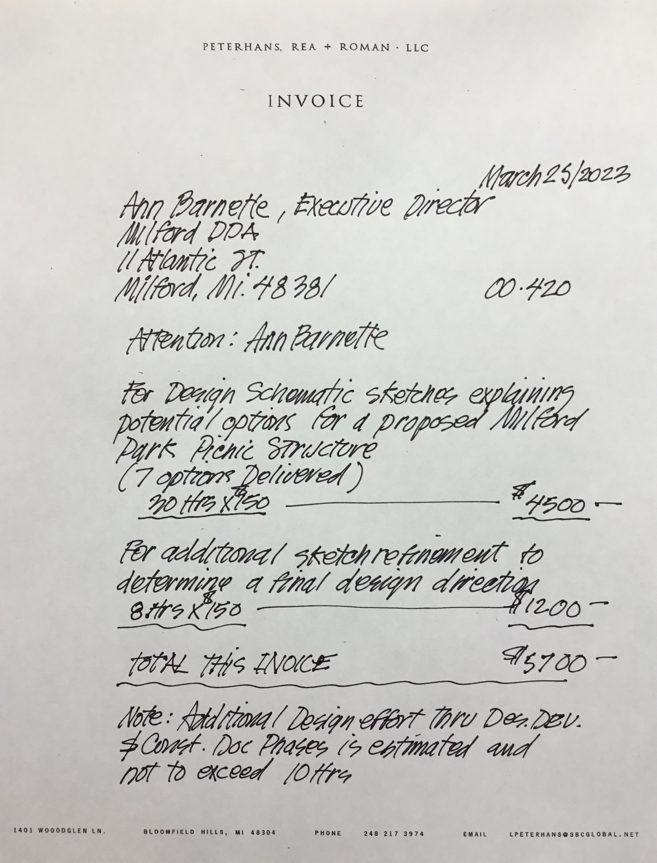 PETERHANS, REA + ROMAN · LLC
INVOICE
March 25/2023
Ann Barnette, Executive Director
Milford DDA
11 Atlantic St.
Milford, Mi. 48381 00·420
Attention: Ann Barnette
For Design Schematic sketches explaining
potential options for a proposed Milford
Park Picnic Structure
(7 options Delivered)
30 Hrs X $150 $4500 —
For additional sketch refinement to
determine a final design direction
8 Hrs X $150 $1200 —
TOTAL THIS INVOICE $5700 —
Note: Additional Design effort thru Des. Dev.
& Const. Doc Phases is estimated and
not to exceed 10 Hrs
1401 WOOODGLEN LN. BLOOMFIELD HILLS, MI 48304 PHONE 248 217 3974 EMAIL LPETERHANS@SBCGLOBAL.NET